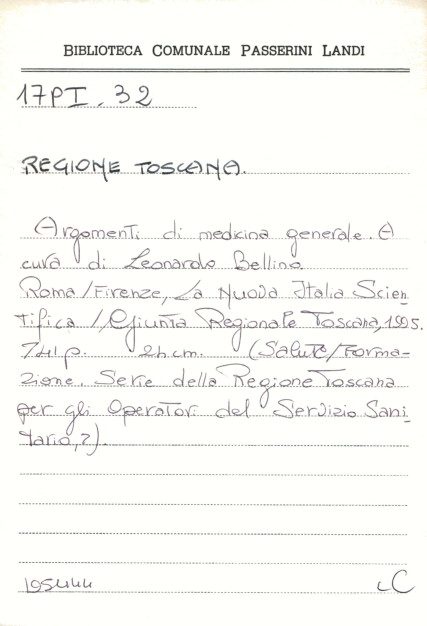 BIBLIOTECA COMUNALE PASSERINI LANDI
17PI. 32
REGIONE TOSCANA.
Argomenti di medicina generale. A
cura di Leonardo Bellino.
Roma/Firenze, La Nuova Italia Scien-
tifica / Giunta Regionale Toscana, 1995.
741 p. 24 cm. (Salute/Forma-
zione. Serie della Regione Toscana
per gli Operatori del Servizio Sani-
tario, 2).
195444
LC